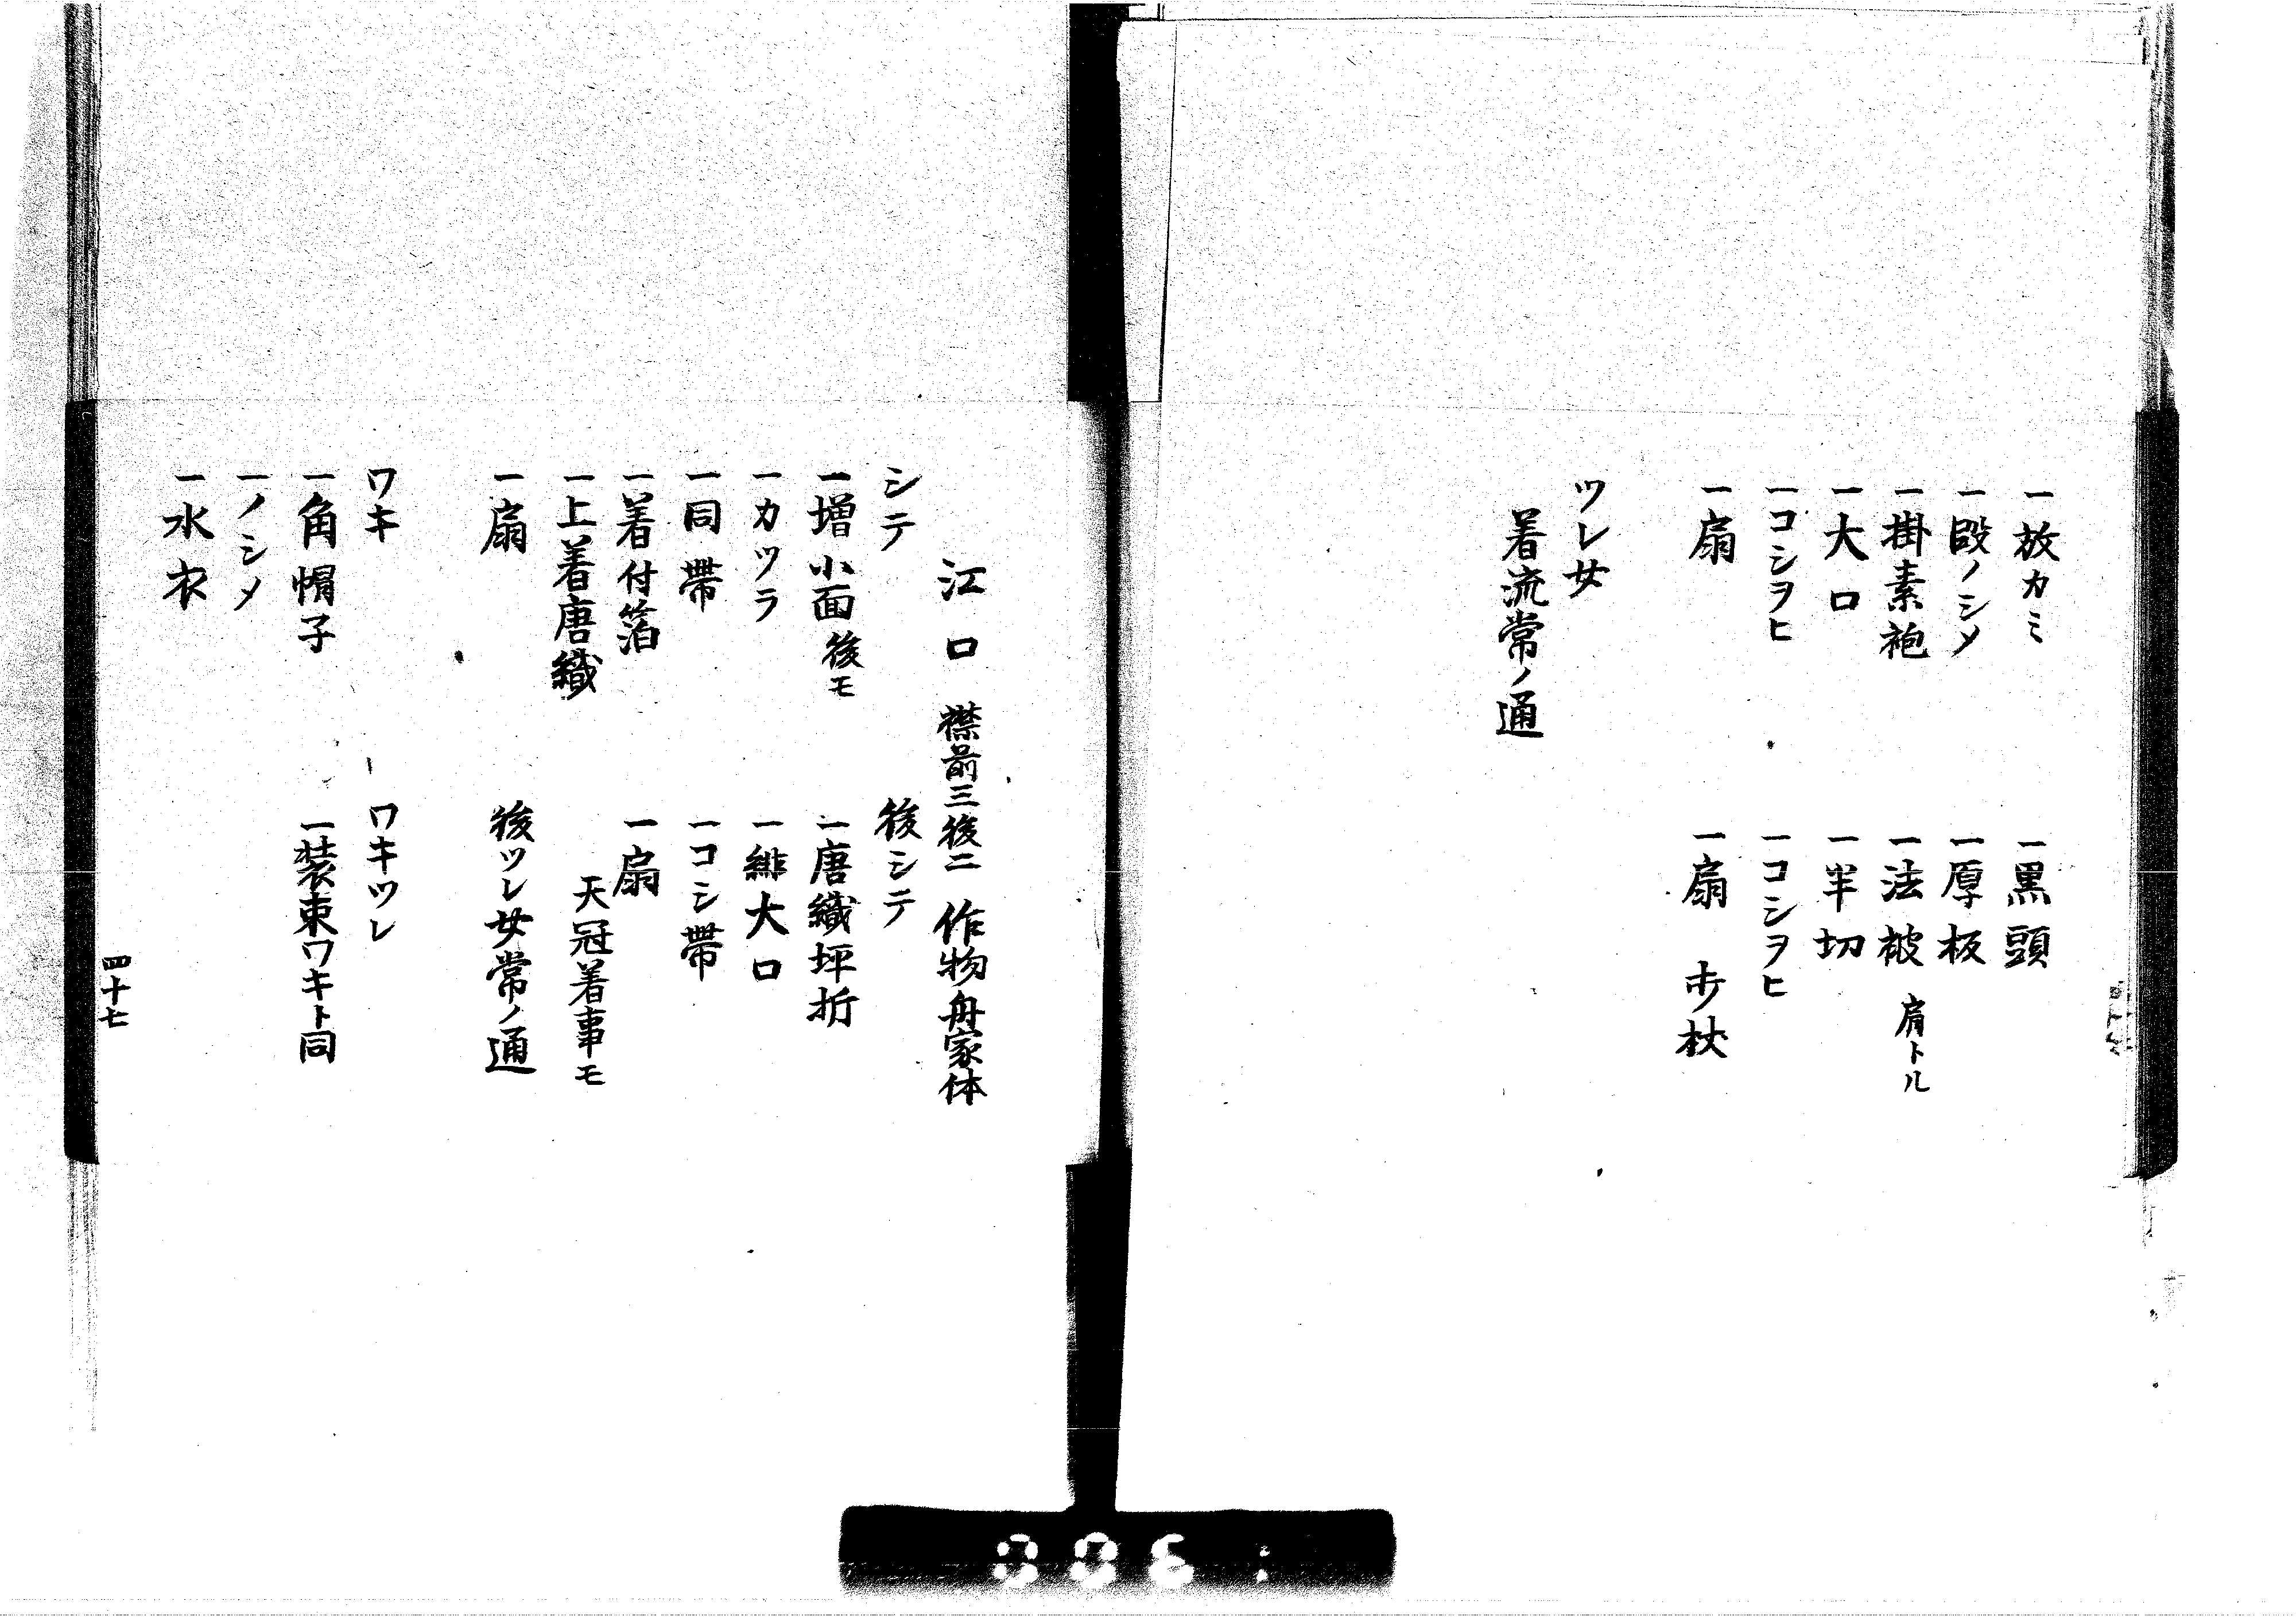 一放カミ
一段ノシメ
一掛素袍
一大口
一コシヲヒ
一扇
一黒頭
一厚板
一法被 肩トル
一半切
一コシヲヒ
一扇 杖
ツレ女
着流常ノ通
江口 襟前三後二 作物舟家体
シテ
一増小面後モ
一カツラ
一同帯
一着付箔
一上着唐織
一扇
後シテ
一唐織坪折
一緋大口
一コシ帯
一扇
天冠着事モ
後ツレ女常ノ通
ワキ
一角帽子
一ノシメ
一水衣
ワキツレ
一装束ワキト同
四十七